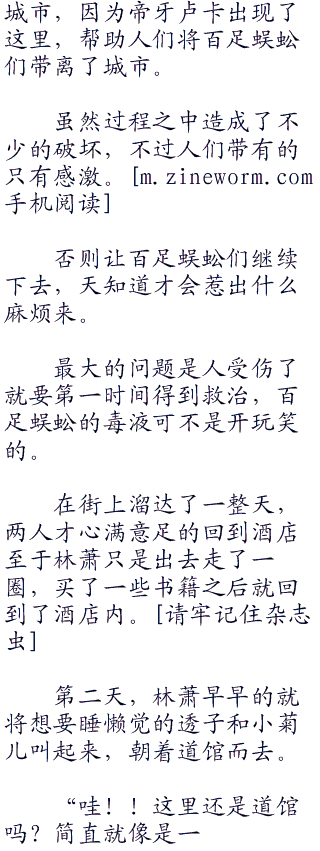 城市，因为帝牙卢卡出现了
这里，帮助人们将百足蜈蚣
们带离了城市。
虽然过程之中造成了不
少的破坏，不过人们带有的
只有感激。[m.zineworm.com
手机阅读]
否则让百足蜈蚣们继续
下去，天知道才会惹出什么
麻烦来。
最大的问题是人受伤了
就要第一时间得到救治，百
足蜈蚣的毒液可不是开玩笑
的。
在街上溜达了一整天，
两人才心满意足的回到酒店
至于林萧只是出去走了一
圈，买了一些书籍之后就回
到了酒店内。[请牢记住杂志
虫]
第二天，林萧早早的就
将想要睡懒觉的透子和小菊
儿叫起来，朝着道馆而去。
“哇！！这里还是道馆
吗？简直就像是一